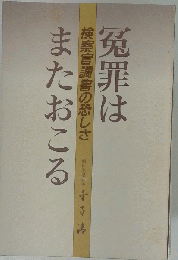 冤罪は
またおこる
検察官調書の恐しさ